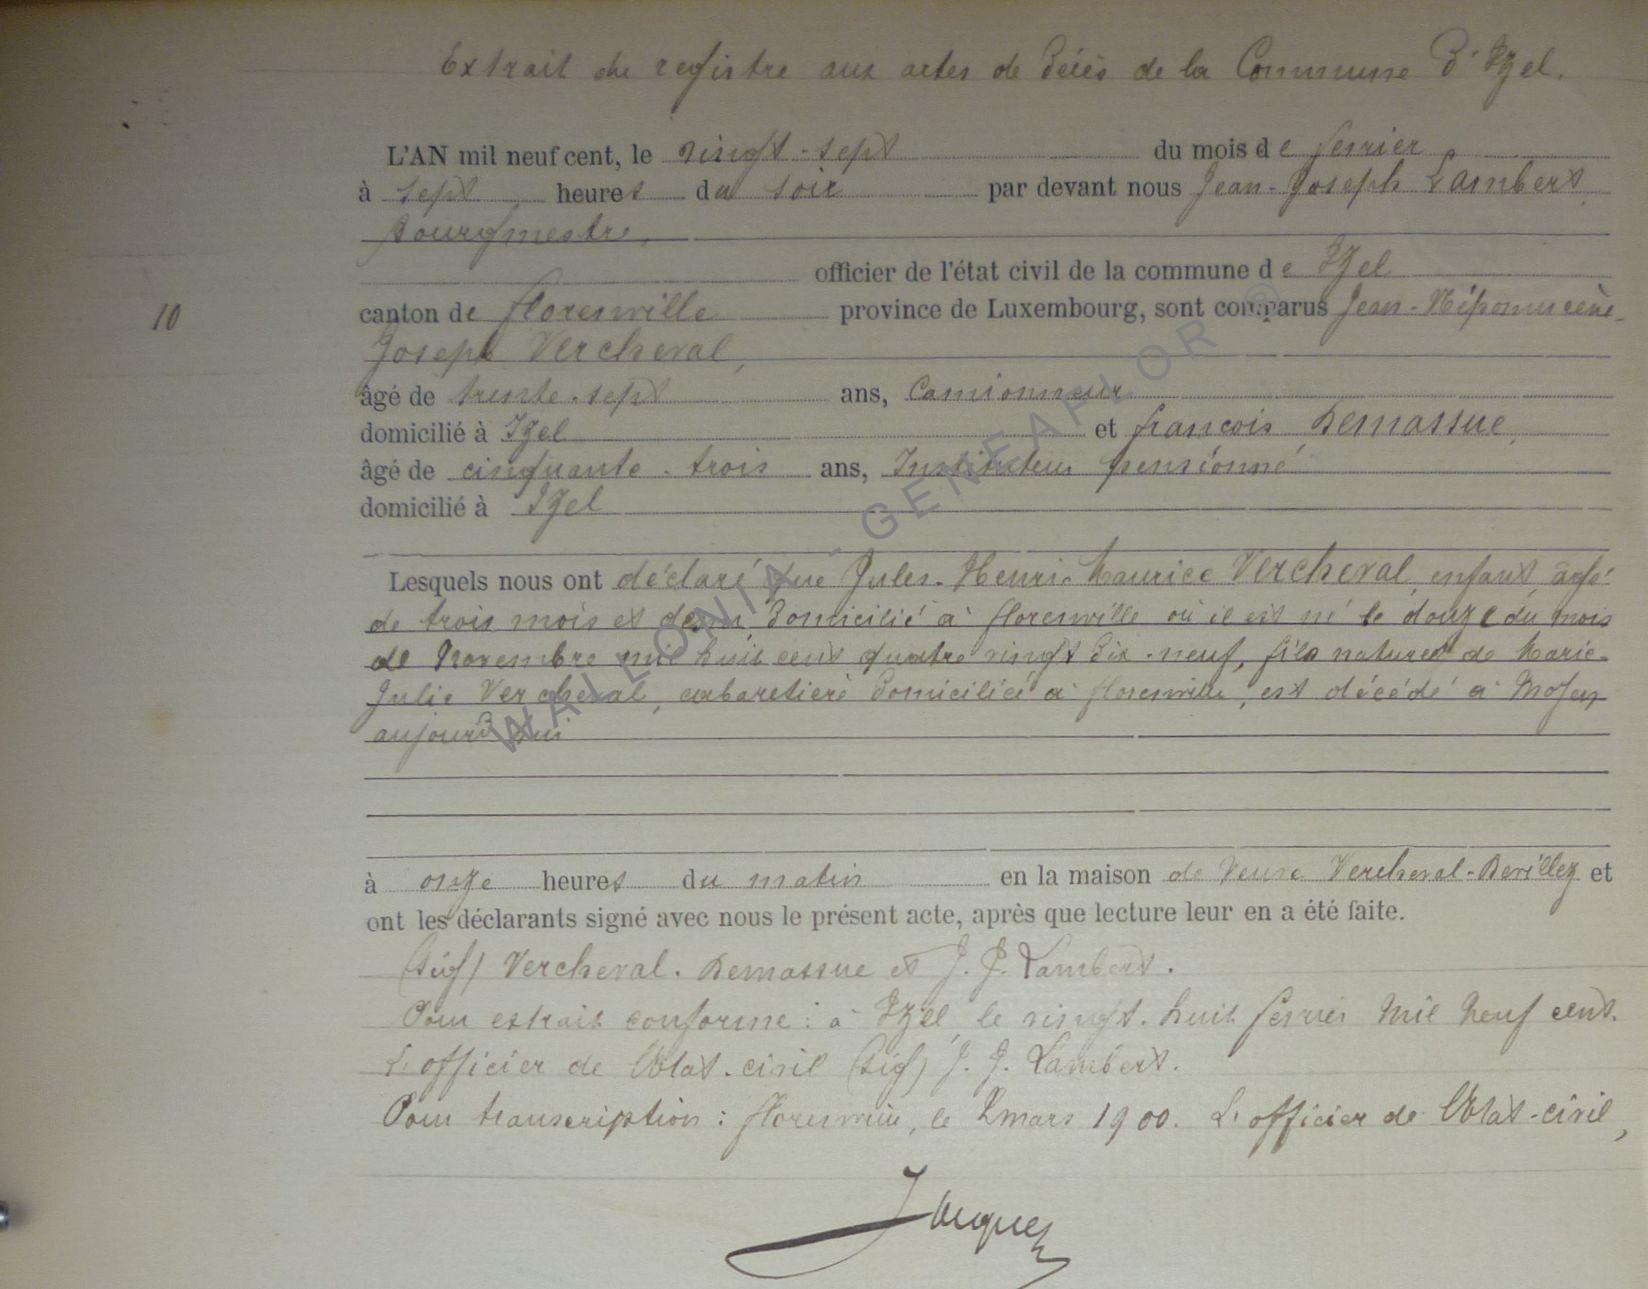 Extrait du registre aux actes de Décès de la Commune d'Izel.
L'AN mil neuf cent, le vingt-sept du mois de février
à sept heures du soir par devant nous Jean-Joseph Lambert,
Bourgmestre,
officier de l'état civil de la commune de Izel
10
canton de Florenville province de Luxembourg, sont comparus Jean-Népomucène-
Joseph Vercheval,
âgé de trente-sept ans, Camionneur
domicilié à Izel et françois Demassue,
âgé de cinquante-trois ans, Instituteur pensionné
domicilié à Izel
Lesquels nous ont déclaré que Jules-Henri-Maurice Vercheval, enfant âgé
de trois mois et demi, domicilié à florenville où il est né le douze du mois
de Novembre mil huit cent quatre vingt dix-neuf, fils naturel de Marie-
Julie Vercheval, cabaretière domiciliée à florenville, est décédé à Moyen
aujourd'hui
à onze heures du matin en la maison de Veuve Vercheval-Devillez et
ont les déclarants signé avec nous le présent acte, après que lecture leur en a été faite.
(sig) Vercheval. Demassue et J. J. Lambert.
Pour extrait conforme : à Izel, le vingt-huit février Mil Neuf cent.
L'officier de l'Etat-civil (sig) J. J. Lambert.
Pour transcription : florenville, le 2 mars 1900. L'officier de l'Etat-civil,
Jacques
WALLONIA - GENEAFLOR ©